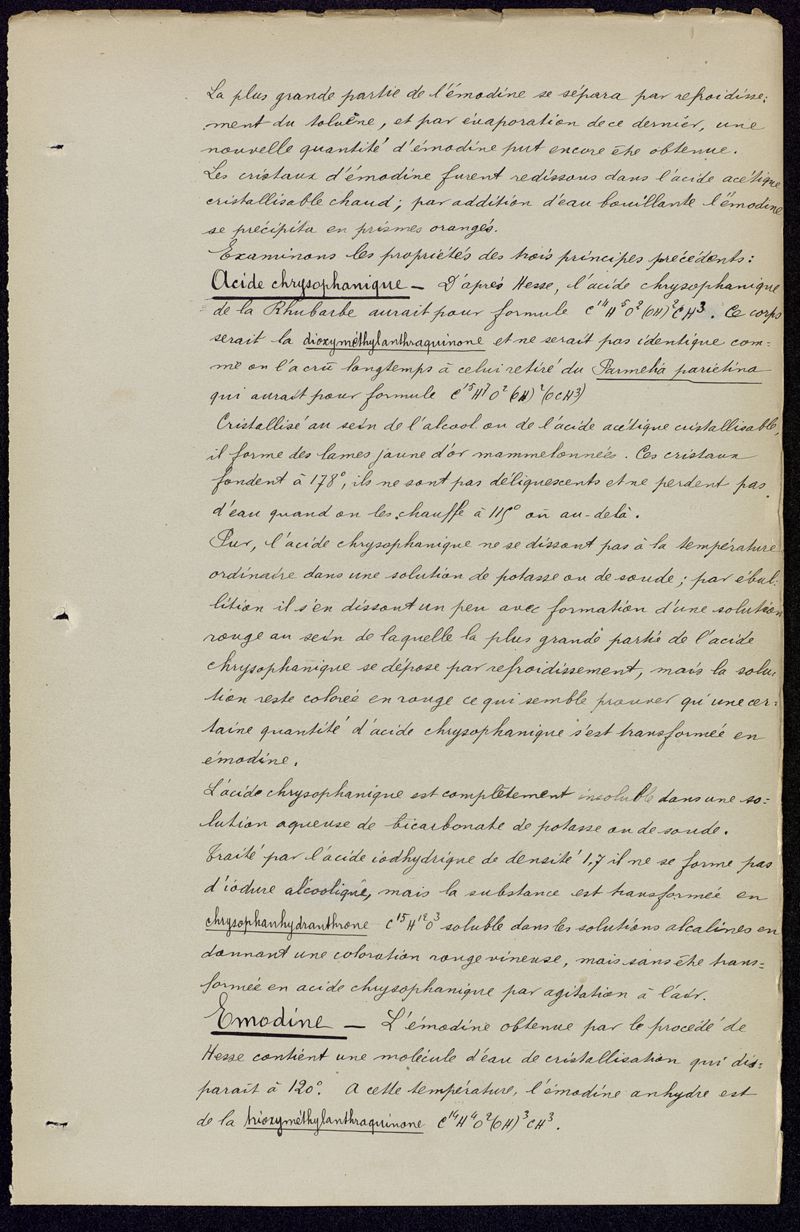 La plus grande partie de l'émodine se sépara par refroidisse=
ment du toluène, et par évaporation de ce dernier, une
nouvelle quantité d'émodine put encore être obtenue.
Les cristaux d'émodine furent redissous dans l'acide acétique
cristallisable chaud; par addition d'eau bouillante l'émodine
se précipita en prismes orangés.
Examinons les propriétés des trois principes précédents:
Acide chrysophanique — D'après Hesse, l'acide chrysophanique
de la Rhubarbe aurait pour formule C¹⁴H⁵O²(OH)²CH³. Ce corps
serait la dioxyméthylanthraquinone et ne serait pas identique com=
me on l'a crû longtemps à celui retiré du Parmelia parietina
qui aurait pour formule C¹⁵H⁷O²(OH)²(OCH³)
Cristallisé au sein de l'alcool ou de l'acide acétique cristallisable,
il forme des lames jaune d'or mammelonnées. Ces cristaux
fondent à 178°, ils ne sont pas déliquescents et ne perdent pas
d'eau quand on les chauffe à 115° où au-delà.
Pur, l'acide chrysophanique ne se dissout pas à la température
ordinaire dans une solution de potasse ou de soude; par ébul=
lition il s'en dissout un peu avec formation d'une solution
rouge au sein de laquelle la plus grande partie de l'acide
chrysophanique se dépose par refroidissement, mais la solu=
tion reste colorée en rouge ce qui semble prouver qu'une cer=
taine quantité d'acide chrysophanique s'est transformée en
émodine.
L'acide chrysophanique est complètement insoluble dans une so=
lution aqueuse de bicarbonate de potasse ou de soude.
Traité par l'acide iodhydrique de densité 1,7 il ne se forme pas
d'iodure alcoolique, mais la substance est transformée en
chrysophanhydranthrone C¹⁵H¹²O³ soluble dans les solutions alcalines en
donnant une coloration rouge vineuse, mais sans être trans=
formée en acide chrysophanique par agitation à l'air.
Emodine — L'émodine obtenue par le procédé de
Hesse contient une molécule d'eau de cristallisation qui dis=
paraît à 120°. A cette température, l'émodine anhydre est
de la trioxyméthylanthraquinone C¹⁴H⁴O²(OH)³CH³.